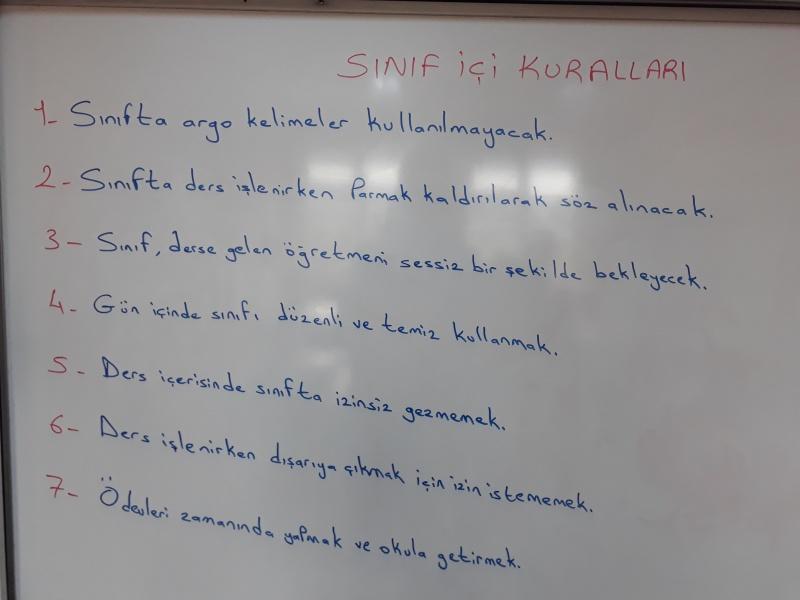 SINIF İÇİ KURALLARI
1- Sınıfta argo kelimeler kullanılmayacak.
2- Sınıfta ders işlenirken Parmak kaldırılarak söz alınacak.
3- Sınıf, derse gelen öğretmeni sessiz bir şekilde bekleyecek.
4- Gün içinde sınıfı düzenli ve temiz kullanmak.
5- Ders içerisinde sınıfta izinsiz gezmemek.
6- Ders işlenirken dışarıya çıkmak için izin istememek.
7- Ödevleri zamanında yapmak ve okula getirmek.